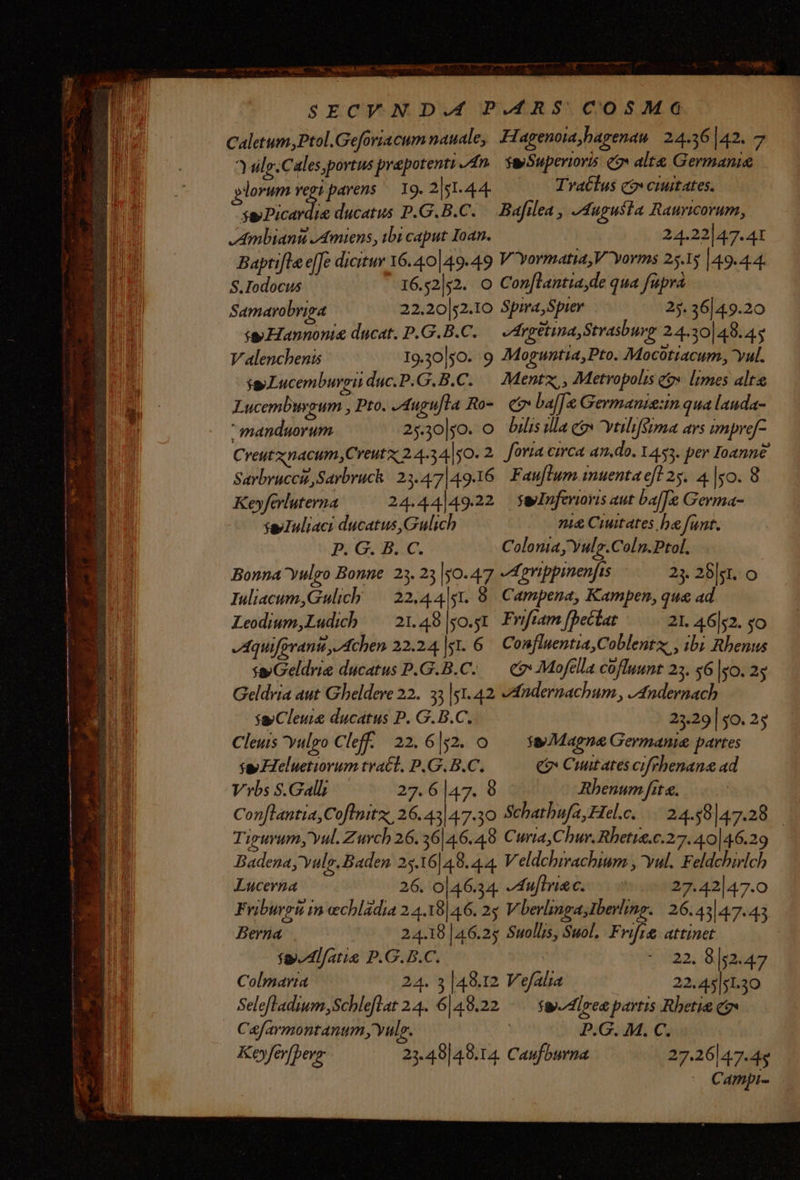 SECVNDA PARS COSMO.
Caletum,Ptol.Gesoriacum nauale,
Vulg.Cales,portus præpotenti An
glorum regi parens 19. 2|51.44.
Picardiæ ducatus P.G.B.C.
Ambianū Amiens, ibi caput Ioan.
Baptistæ esse dicitur 16.40|49.49
S.Iodocus 16.52|52. 0
Samarobriga 22.20|52.10
Hannoniæ ducat. P.G.B.C.
Valenchenis 19.30|50. 9
Lucemburgii duc.P.G.B.C.
Lucemburgum, Pto. Augusta Ro-
manduorum 25.30|50. 0
Creutznacum,Creutz 24.34|50. 2
Sarbruccū,Sarbruck 23.47|49.16
Keyserluterna 24.44|49.22
Iuliaci ducatus,Gulich
P. G. B. C.
Bonna vulgo Bonne 23. 23|50.47
Iuliacum,Gulich 22.44|51. 8
Leodium,Ludich 21.48|50.51
Aquisgranū,Achen 22.24|51. 6
Geldriæ ducatus P.G.B.C.
Geldria aut Gheldere 22. 33|51.42
Cleuiæ ducatus P. G.B.C.
Cleuis vulgo Cleff. 22. 6|52. 0
Heluetiorum tract. P.G.B.C.
Vrbs S.Galli 27.6|47. 8
Constantia,Costnitz, 26.43|47.30
Tigurum, vul. Zurch 26.36|46.48
Badena, vulg.Baden 25.16|48.44
Lucerna 26. 0|46.34
Friburgū in œchlādia 24.18|46. 25
Berna 24.18|46.25
Alsatiæ P.G.B.C.
Colmaria 24. 3|48.12
Selestadium,Schlestat 24. 6|48.22
Cæsarmontanum, vulg.
Keysersperg 23.48|48.14
Hagenoia,hagenau 24.36|42. 7
Superioris & altæ Germaniæ
Tractus & ciuitates.
Basilea, Augusta Rauricorum,
24.22|47.41
Vvormatia,Vvorms 25.15|49.44
Constantia,de qua suprà
Spira,Spier 25. 36|49.20
Argētina,Strasburg 24.30|48.45
Moguntia,Pto. Mocōtiacum, vul.
Mentz, Metropolis & limes altæ
& bassæ Germaniæ:in qua lauda-
bilis illa & vtilissima ars impres-
soria circa an.do. 1453. per Ioannē
Faustum inuenta est 25. 4|50. 8
Inferioris aut bassæ Germa-
niæ Ciuitates hæ sunt.
Colonia, vulg.Coln.Ptol.
Agrippinensis 23. 28|51. 0
Campena, Kampen, quæ ad
Frisiam spectat 21. 46|52. 50
Confluentia,Coblentz, ibi Rhenus
& Mosella cōfluunt 23. 56|50. 25
Andernachum, Andernach
23.29|50. 25
Magnæ Germaniæ partes
& Ciuitates cisrhenanæ ad
Rhenum sitæ.
Schathusa,Hel.c. 24.58|47.28
Curia,Chur.Rhetiæ.c.27.40|46.29
Veldchirachium, vul. Feldchirlch
Austriæ c. 27.42|47.0
Vberlinga,Iberling. 26.43|47.43
Suollis, Suol. Frisiæ attinet
22. 8|52.47
Vesalia 22.45|51.30
Alpeæ partis Rhetiæ &
P.G. M. C.
Caufburna 27.26|47.45
Campi-